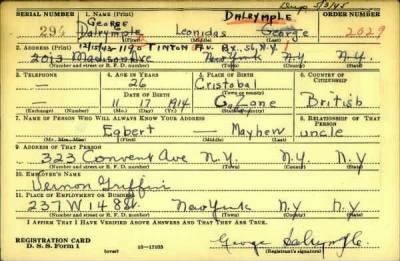 Dup 5/3/45
SERIAL NUMBER 1. NAME (Print) DALRYMPLE ORDER NUMBER
George
294 Dalrymple Leonidas George 2029
(First) (Middle) (Last)
12/15/43 - 1190 TINTON Av. Bx. 56, N.Y.
2. ADDRESS (Print)
2013 Madison Ave New York N.Y. N.Y.
(Number and street or R. F. D. number) (Town) (County) (State)
3. TELEPHONE 4. AGE IN YEARS 5. PLACE OF BIRTH 6. COUNTRY OF CITIZENSHIP
— 26 Cristobal
DATE OF BIRTH (Town or county)
— 11 17 1914 C. Zone British
(Exchange) (Number) (Mo.) (Day) (Yr.) (State or country)
7. NAME OF PERSON WHO WILL ALWAYS KNOW YOUR ADDRESS 8. RELATIONSHIP OF THAT PERSON
Egbert — Mayhew uncle
(Mr., Mrs., Miss) (First) (Middle) (Last)
9. ADDRESS OF THAT PERSON
323 Convent Ave N.Y. N.Y. N.Y
(Number and street or R. F. D. number) (Town) (County) (State)
10. EMPLOYER'S NAME
Vernon Griffin
11. PLACE OF EMPLOYMENT OR BUSINESS
237 W 148 St. New York N.Y. N.Y
(Number and street or R. F. D. number) (Town) (County) (State)
I AFFIRM THAT I HAVE VERIFIED ABOVE ANSWERS AND THAT THEY ARE TRUE.
REGISTRATION CARD
D. S. S. Form 1 (over) 16—17105 George Dalrymple
(Registrant's signature)